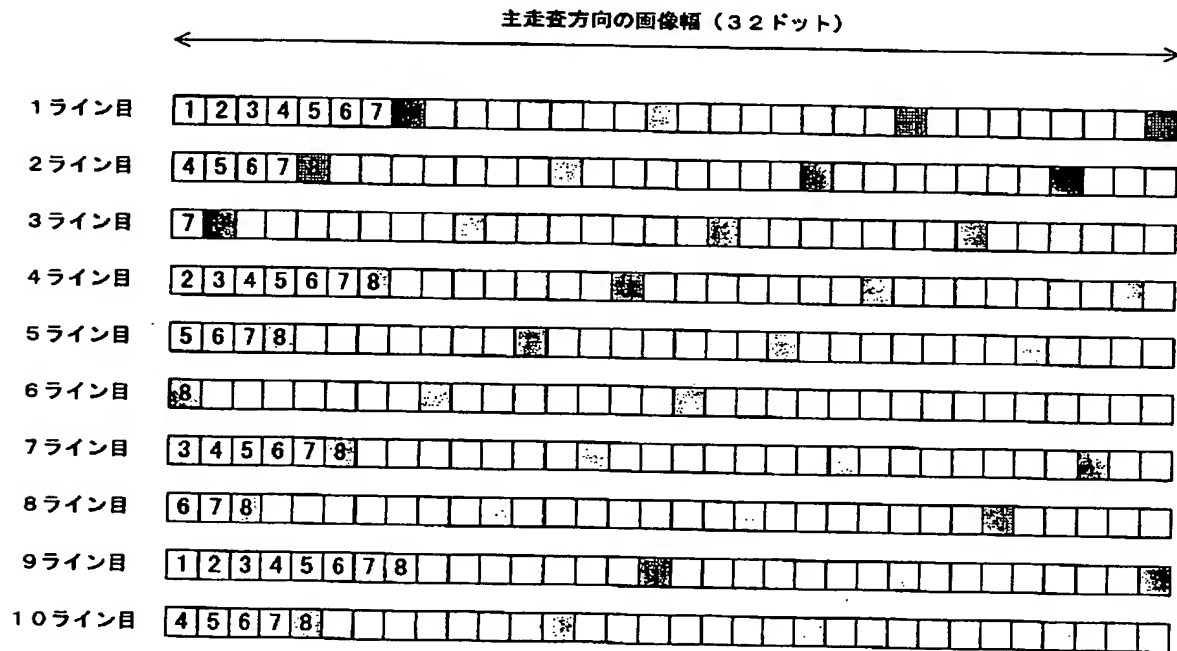 主走査方向の画像幅(32ドット)
1ライン目 1 2 3 4 5 6 7
2ライン目 4 5 6 7 8
3ライン目 7
4ライン目 2 3 4 5 6 7 8
5ライン目 5 6 7 8
6ライン目 8
7ライン目 3 4 5 6 7 8
8ライン目 6 7 8
9ライン目 1 2 3 4 5 6 7 8
10ライン目 4 5 6 7 8